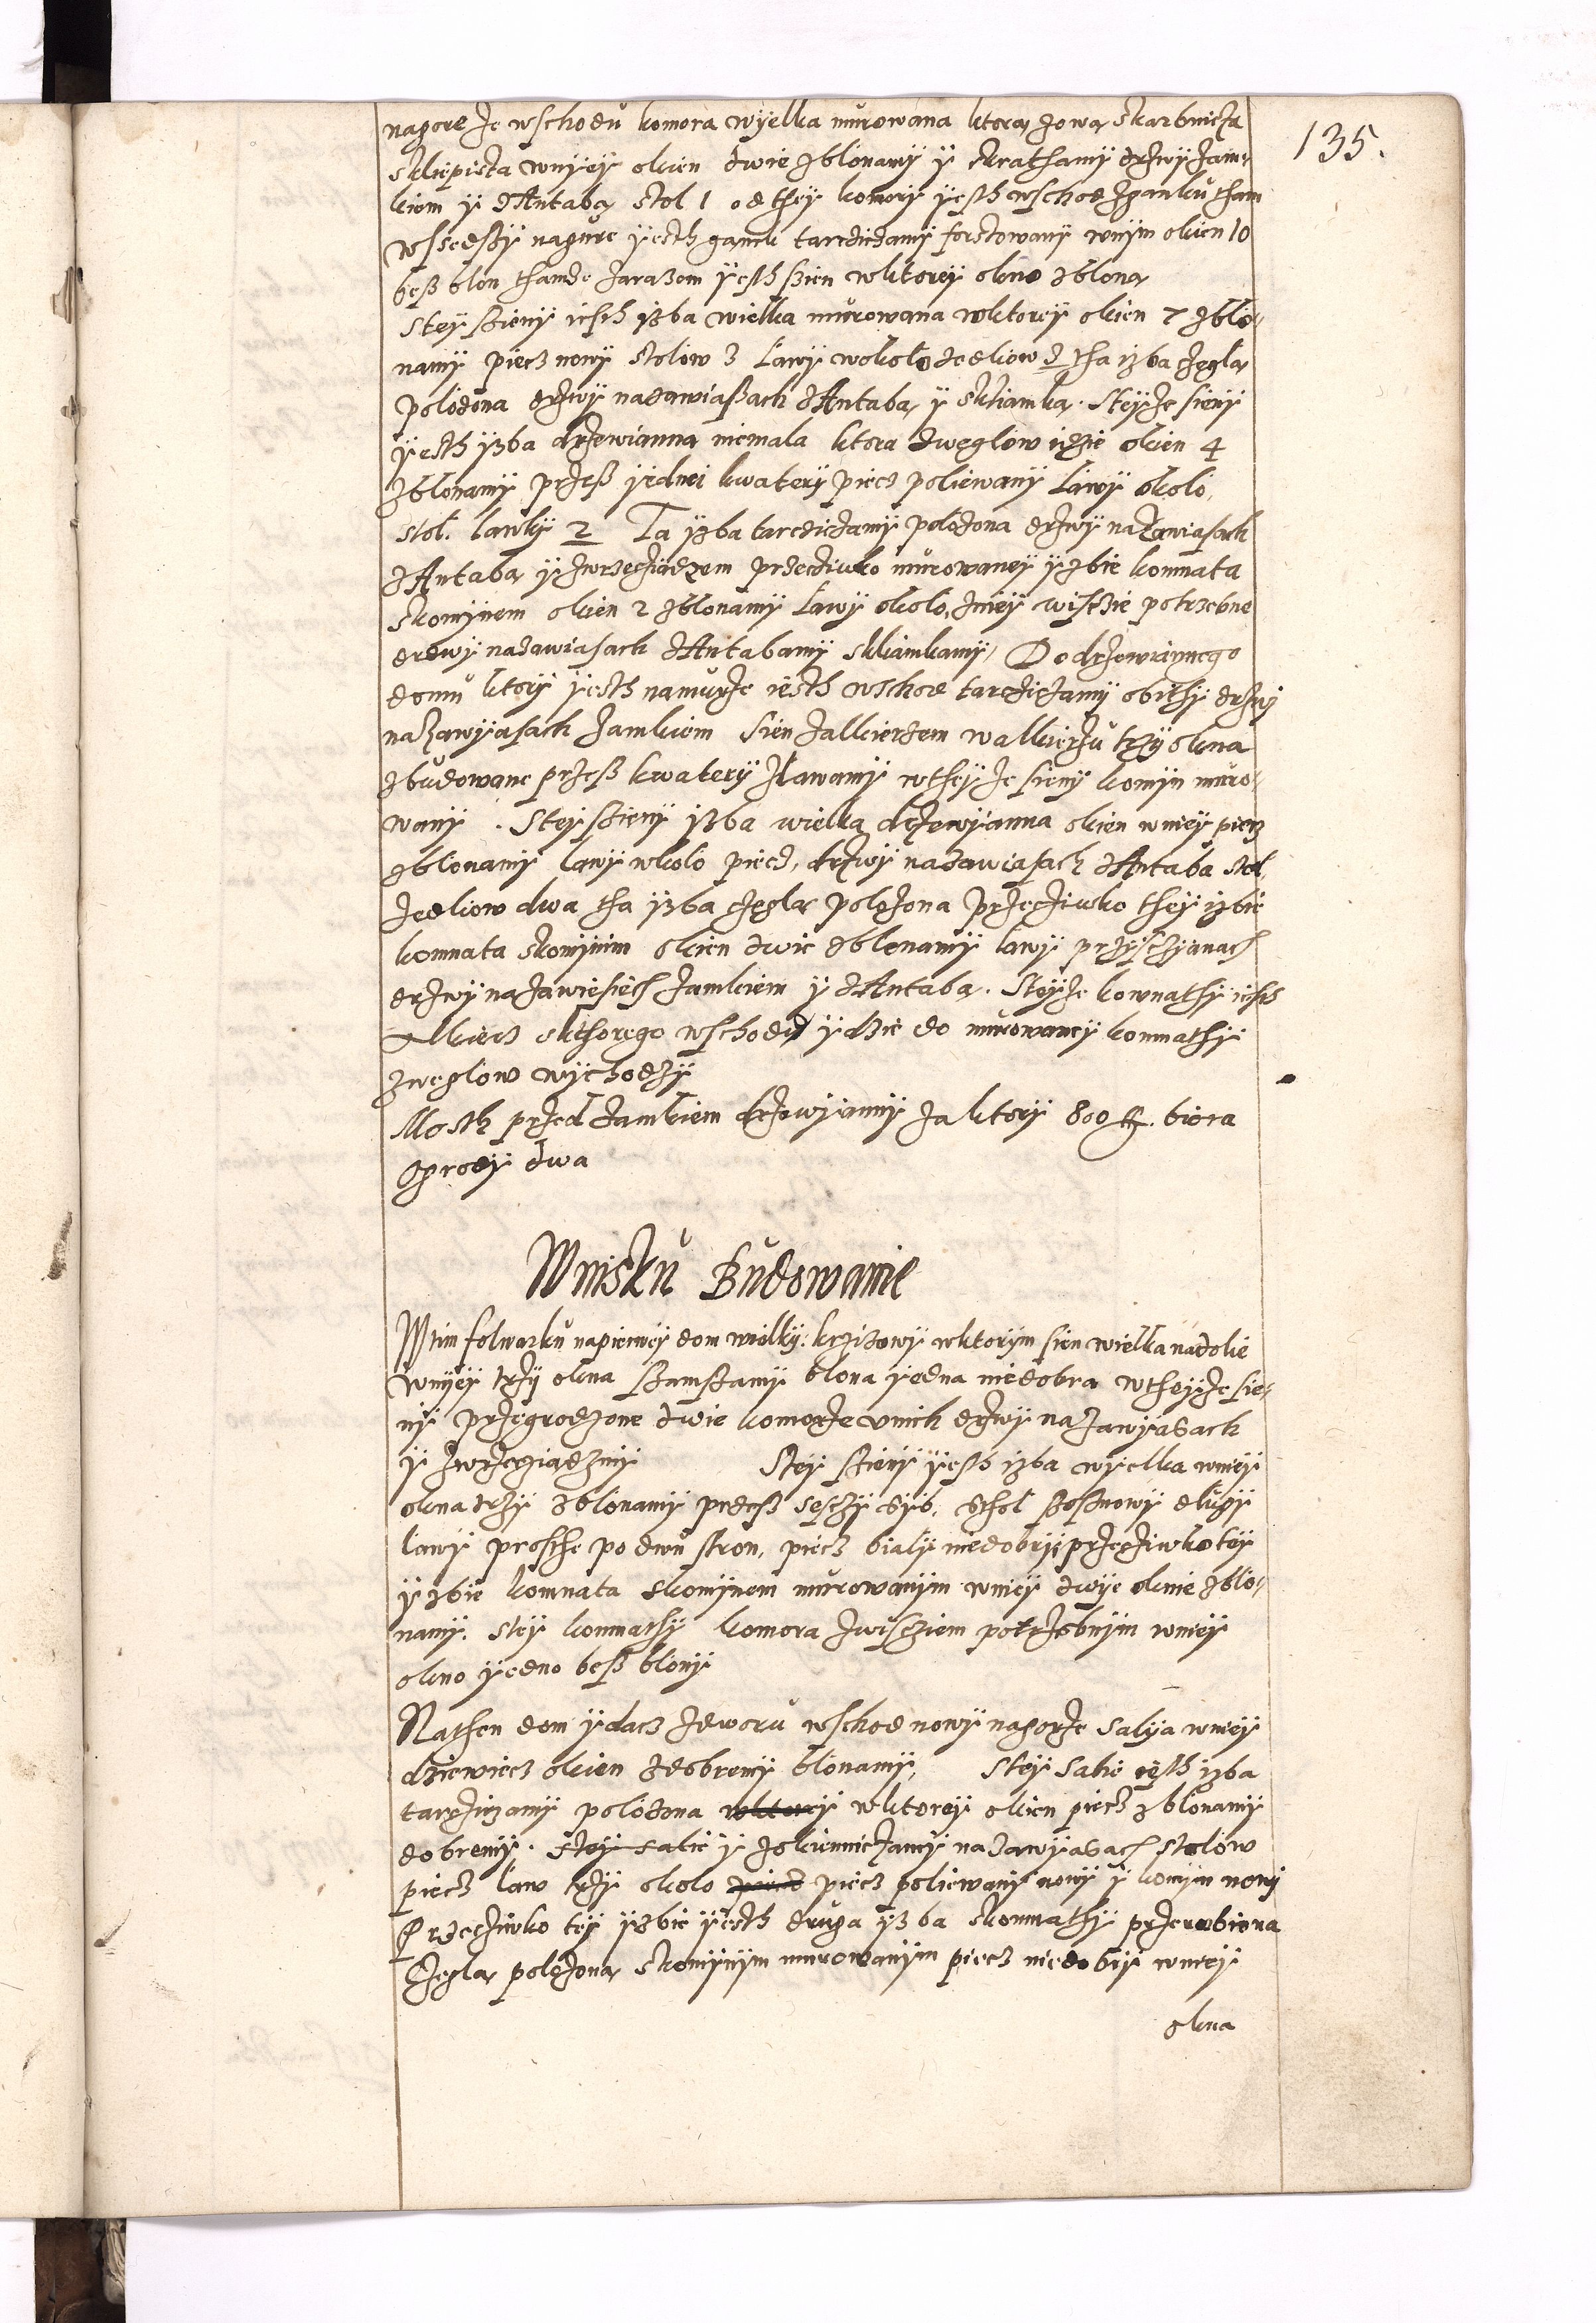 135.
nagore ze wschodu komora wyelka murowana ktorą zową Skarbnicza
sklepista wnyey okien dwie zblonamy y skrathamy drzwy zam-
kiem y zAntabą stol 1 od they komory yesth wschod zganku tham
wssedssy nagure yesth ganek tarczicamy forstowany wnym okien 10
bess blon thamze zarazem yesth sien wktorey okno zbloną
Stey sieny iesth izba wielka murowana wktorey okien 7 zblo-
namy piecz nowy stolow 3 Lawy wokolo zedliow 3 tha izba czeglą
polozona drzwy nazawiassach zAntabą y skliamką. Steyze sieny
yesth yzba drzewianna niemala ktora zweglow idzie okien 4
zblonamy przess yednei kwatery piecz poliewany Lawy okolo,
stol. lawky 2 Ta yzba tarczicamy polozona drzwy nazawiasach
zAntabą yzwrzecziądzem przecziwko murowaney yzbie komnata
skominem okien 2 zblonamy Lawy okolo, zniey wiscie potrzebne
drzwy nazawiasach zAntabamy skliamkamy, Do drzewiannego
domu ktory yesth namurze iesth wschod tarczicamy obithy drzwy
nazawyasach zamkiem Sien zalkierzem walkierzu trzy okna
zbudowane przess kwatery zlawamy wtheyze sieny komin muro-
wany. Stey sieny yzba wielka drzewyanna okien wniey piecz
zblonamy lawy wkolo piecz, drzwy nazawiasach zAntabą stol,
zedliow dwa tha yzba czeglą polozona przecziwko they izbie
komnata skominim okien dwie zblonamy lawy przyscyanach
drzwy nazawiesiech zamkiem y zAntabą. Steyze kownathy iesth
Alkierz skthorego wschody ydzie do murowaney komnathy
zweglow wychodzy
Mosth przed zamkiem drzewyanny zaktory 800 ff. biora
Ogrody dwa
Wnisku Budowanie
Wtim folwarku napierwey dom wielky: krzizowy wktorym sien wielka nadolie
wnyey trzy okna szamszamy blona yedna niedobra wtheyze sie-
ny przegrodzone dwie komorze vnich drzwy nazawyasach
y zwrzecziądzmy Stey sieny yesth izba wyelka wniey
okna trzy zblonamy przess sesczy syb, sthol sossnowy dlugy
lawy prosthe po dwu stron, piecz bialy niedobry przecziwko tey
yzbie komnata skominem murowanym wniey dwye oknie zblo-
namy. stey komnathy komora zwisciem potrzebnym wniey
okno yedno bess blony
Nathen dom ydacz zdworu wschod nowy nagorze Salya wniey
dziewiecz okien zdobremy blonamy, Stey Salie iesth izba
tarczicamy polozona wktorey wktorey okien piecz zblonamy
dobremy. stey salie y zokiennicamy nazawyasach stolow
piecz law trzy okolo piecz piecz poliewany nowy y komyn nowy
Przecziwko tey yzbie yesth druga yzba skomnathy przerobiona
Czeglą polozoną skominym murowanym piecz niedobry wniey
okna